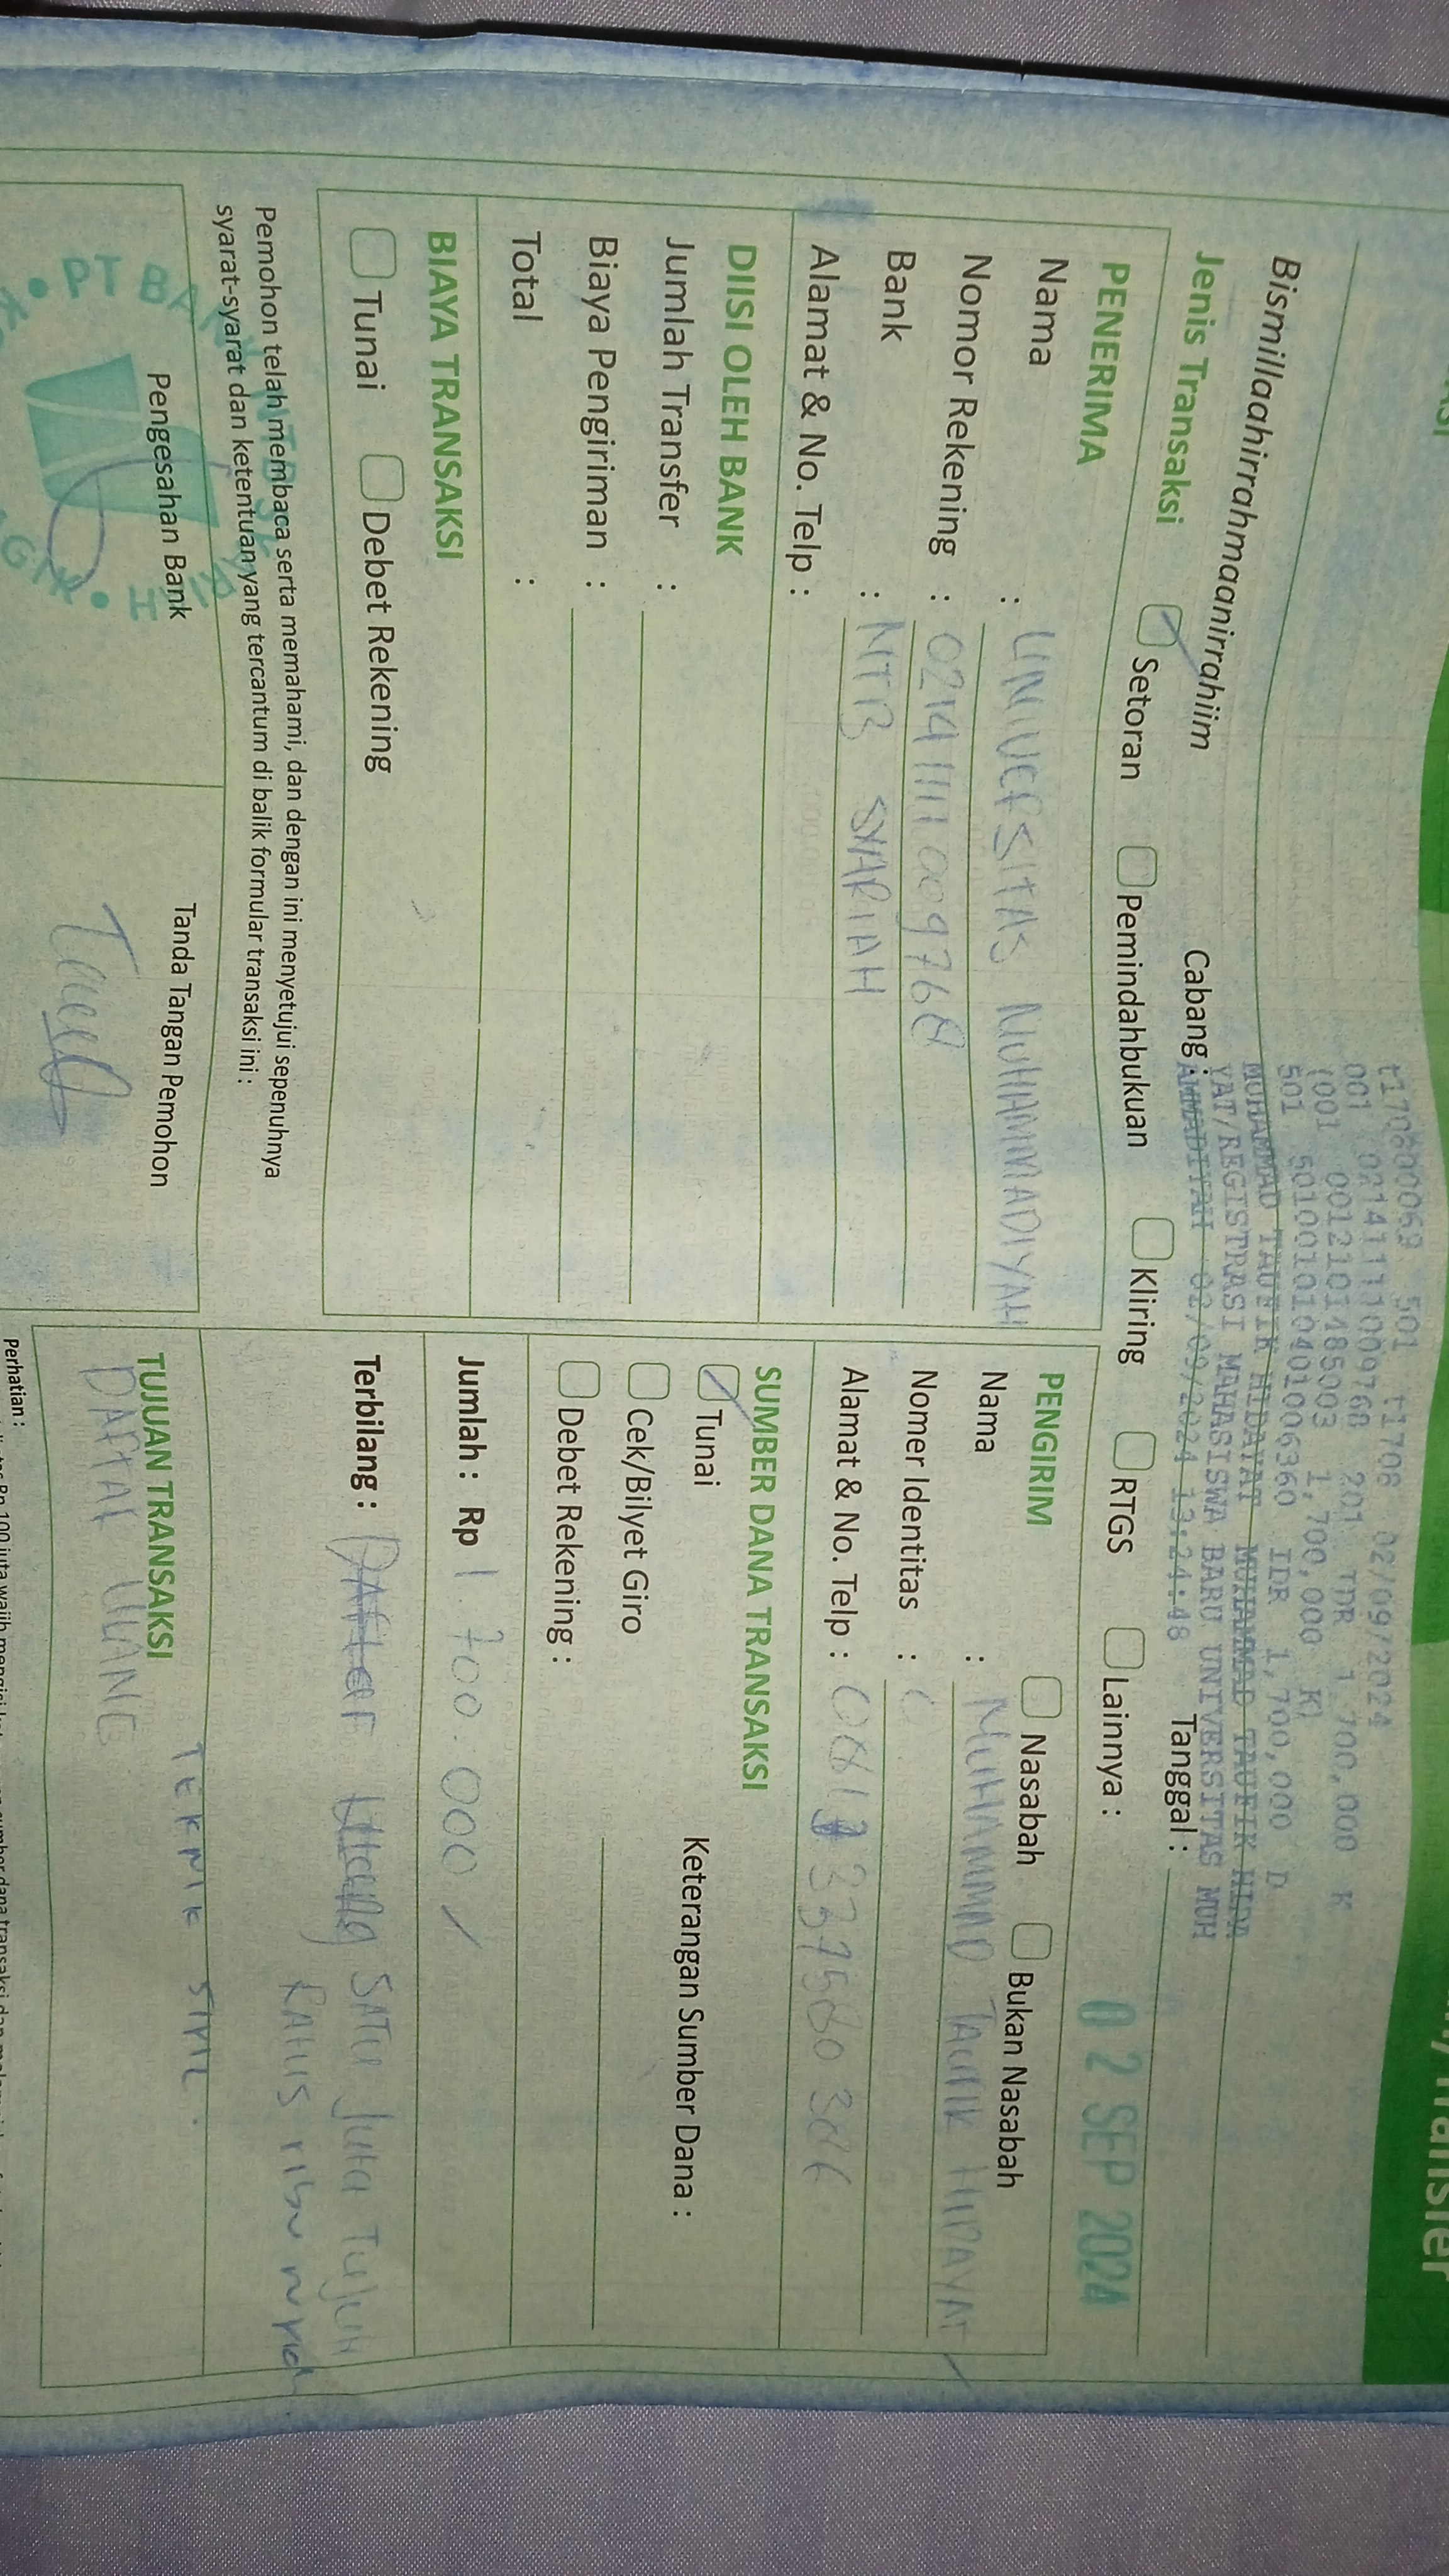 t1706000069 501 t1708 02/09/2024
001 021411111009768 201 IDR 1,700,000 K
(001 0012101485003 1,700,000 K)
501 5010010104010063​60 IDR 1,700,000 D
MUHAMMAD TAUFIK HIDAYAT MUHAMMAD TAUFIK HIDA
YAT/REGISTRASI MAHASISWA BARU UNIVERSITAS MUH
AMMADIYAH 02/09/2024 13:24:48
Bismillaahirrahmaanirrahiim
Cabang :
Tanggal :
02 SEP 2024
Jenis Transaksi
Setoran
Pemindahbukuan
Kliring
RTGS
Lainnya :
PENERIMA
Nama : UNIVERSITAS MUHAMMADIYAH
Nomor Rekening : 0214111110097 68
Bank : NTB SYARIAH
Alamat & No. Telp :
DIISI OLEH BANK
Jumlah Transfer :
Biaya Pengiriman :
Total :
BIAYA TRANSAKSI
Tunai
Debet Rekening
Pemohon telah membaca serta memahami, dan dengan ini menyetujui sepenuhnya
syarat-syarat dan ketentuan yang tercantum di balik formular transaksi ini :
Pengesahan Bank
Tanda Tangan Pemohon
PENGIRIM
Nasabah
Bukan Nasabah
Nama : MUHAMMAD TAUFIK HIDAYAT
Nomer Identitas :
Alamat & No. Telp :
SUMBER DANA TRANSAKSI
Tunai
Keterangan Sumber Dana :
Cek/Bilyet Giro
Debet Rekening :
Jumlah : Rp 1.700.000
Terbilang : DAFTAR ULANG SATU JUTA TUJUH
RATUS ribu rupiah
TEKNIK SIPIL.
TUJUAN TRANSAKSI
DAFTAR ULANG
Perhatian :